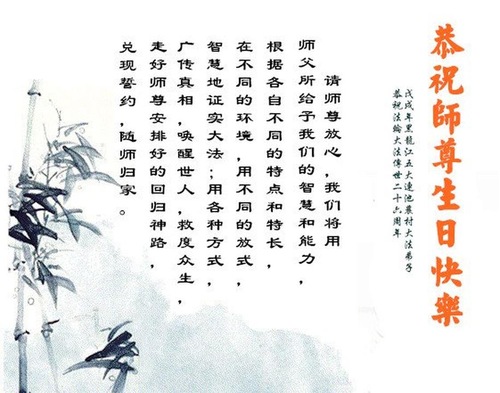 恭祝師尊生日快樂
戊戌年黑龍江五大連池農村大法弟子
恭祝法輪大法傳世二十六周年
请师尊放心,我们将用
师父所给予我们的智慧和能力,
根据各自不同的特点和特长,
在不同的环境,用不同的放式,
智慧地证实大法;用各种方式,
广传真相,唤醒世人,救度众生,
走好师尊安排好的回归神路,
兑现誓约,随师归家。